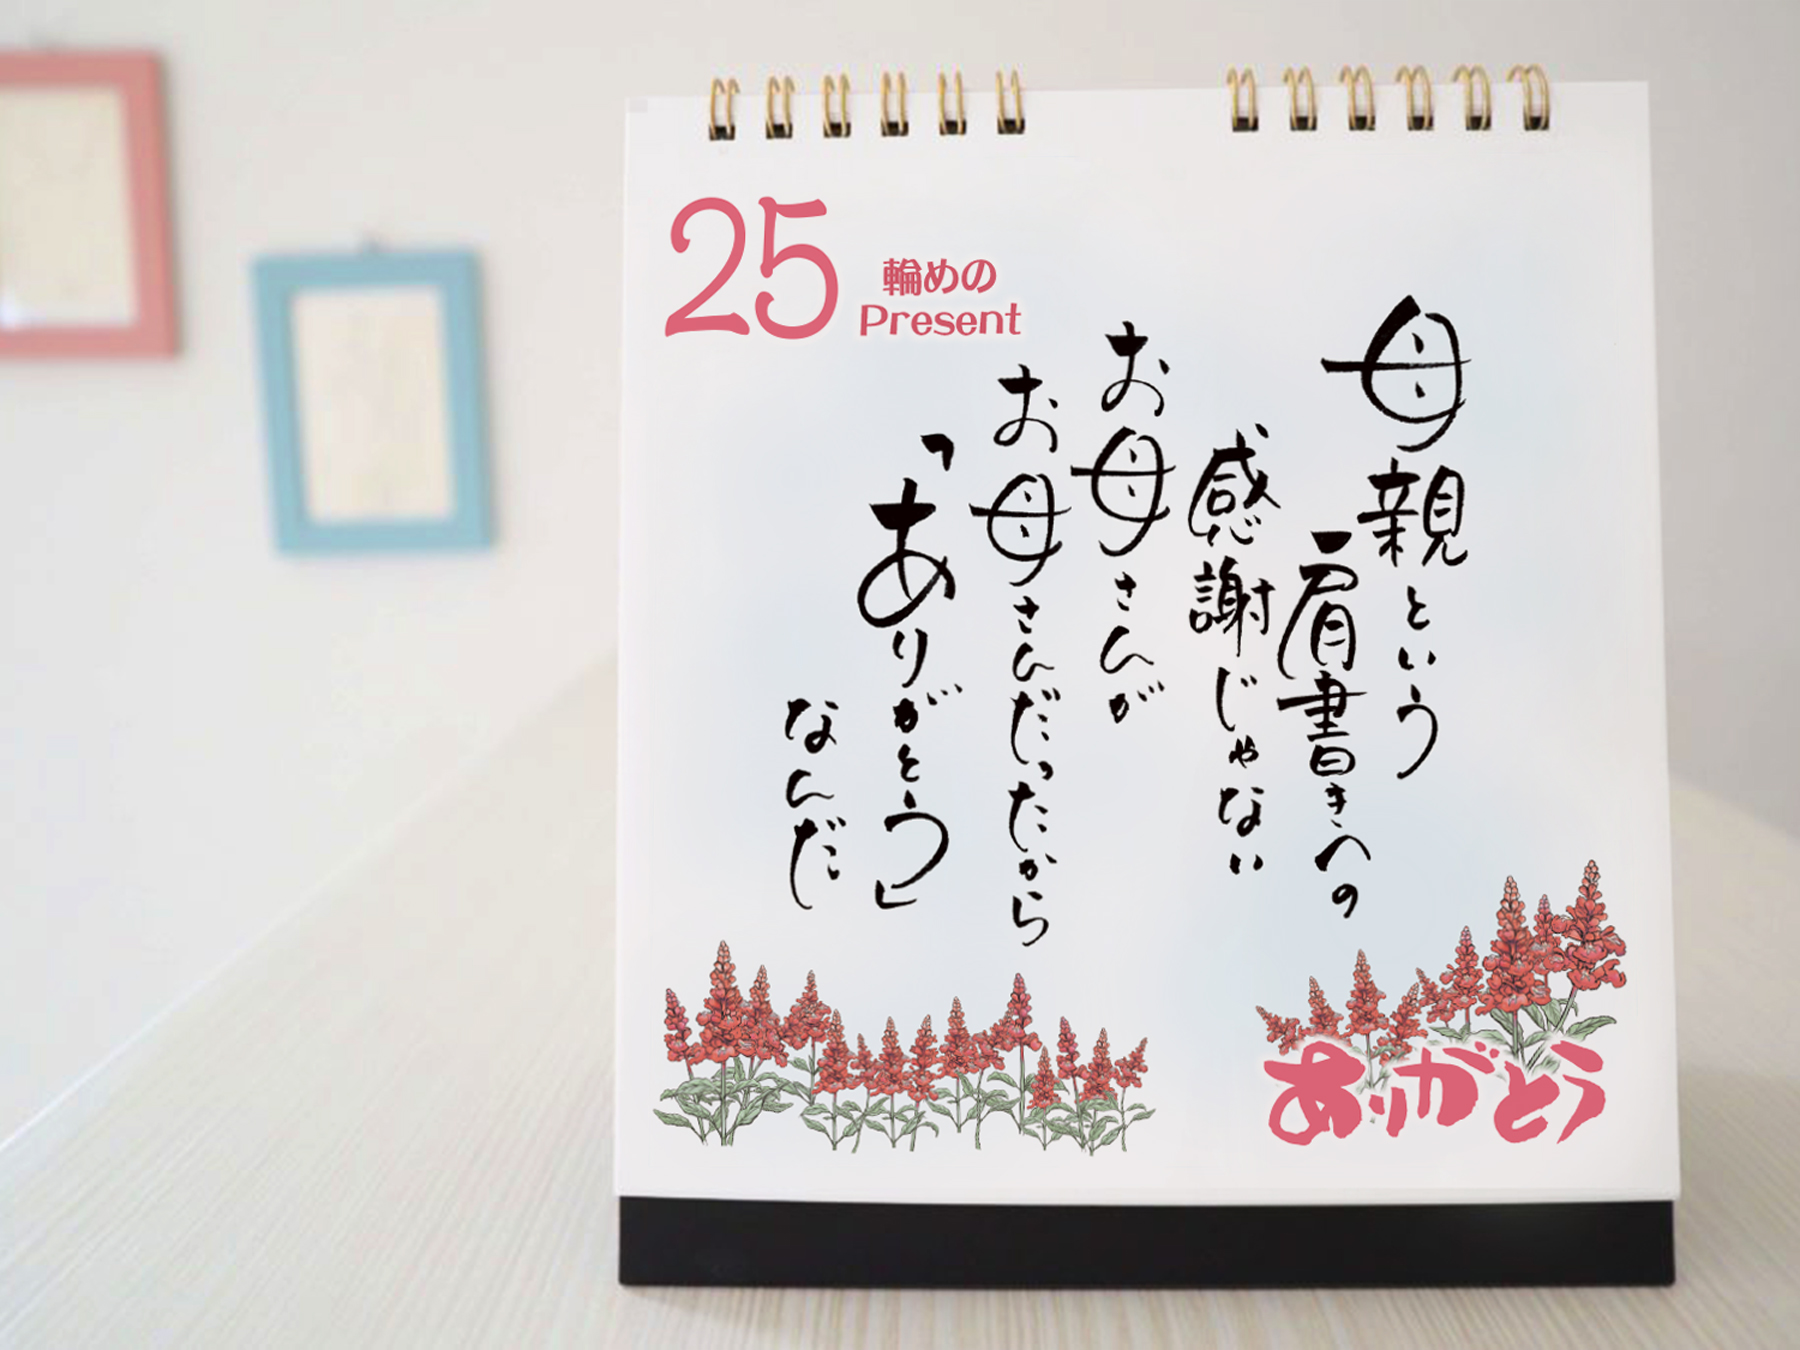 25
輪めの
Present
母親という
肩書きへの
感謝じゃない
お母さんが
お母さんだったから
「ありがとう」
なんだ
ありがとう